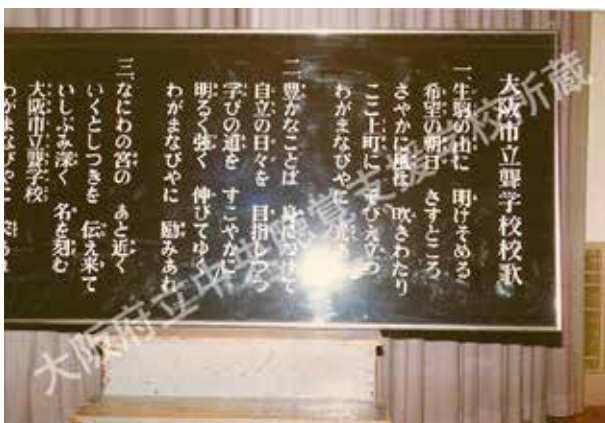 大阪市立聾学校校歌
一、生駒の山に 明けそめる
希望の朝日 さすところ
さやかに風は 吹きわたり
ここ上町に そびえ立つ
わがまなびやに
二、豊かなことば 身につけて
自立の日々を 目指しつつ
学びの道を すこやかに
明るく強く 伸びてゆく
わがまなびやに 励みあれ
三、なにわの宮の あと近く
いくとしつきを 伝え来て
いしぶみ深く 名を刻む
大阪市立聾学校
わがまなびやに
大阪府立中央聴覚支援学校所蔵